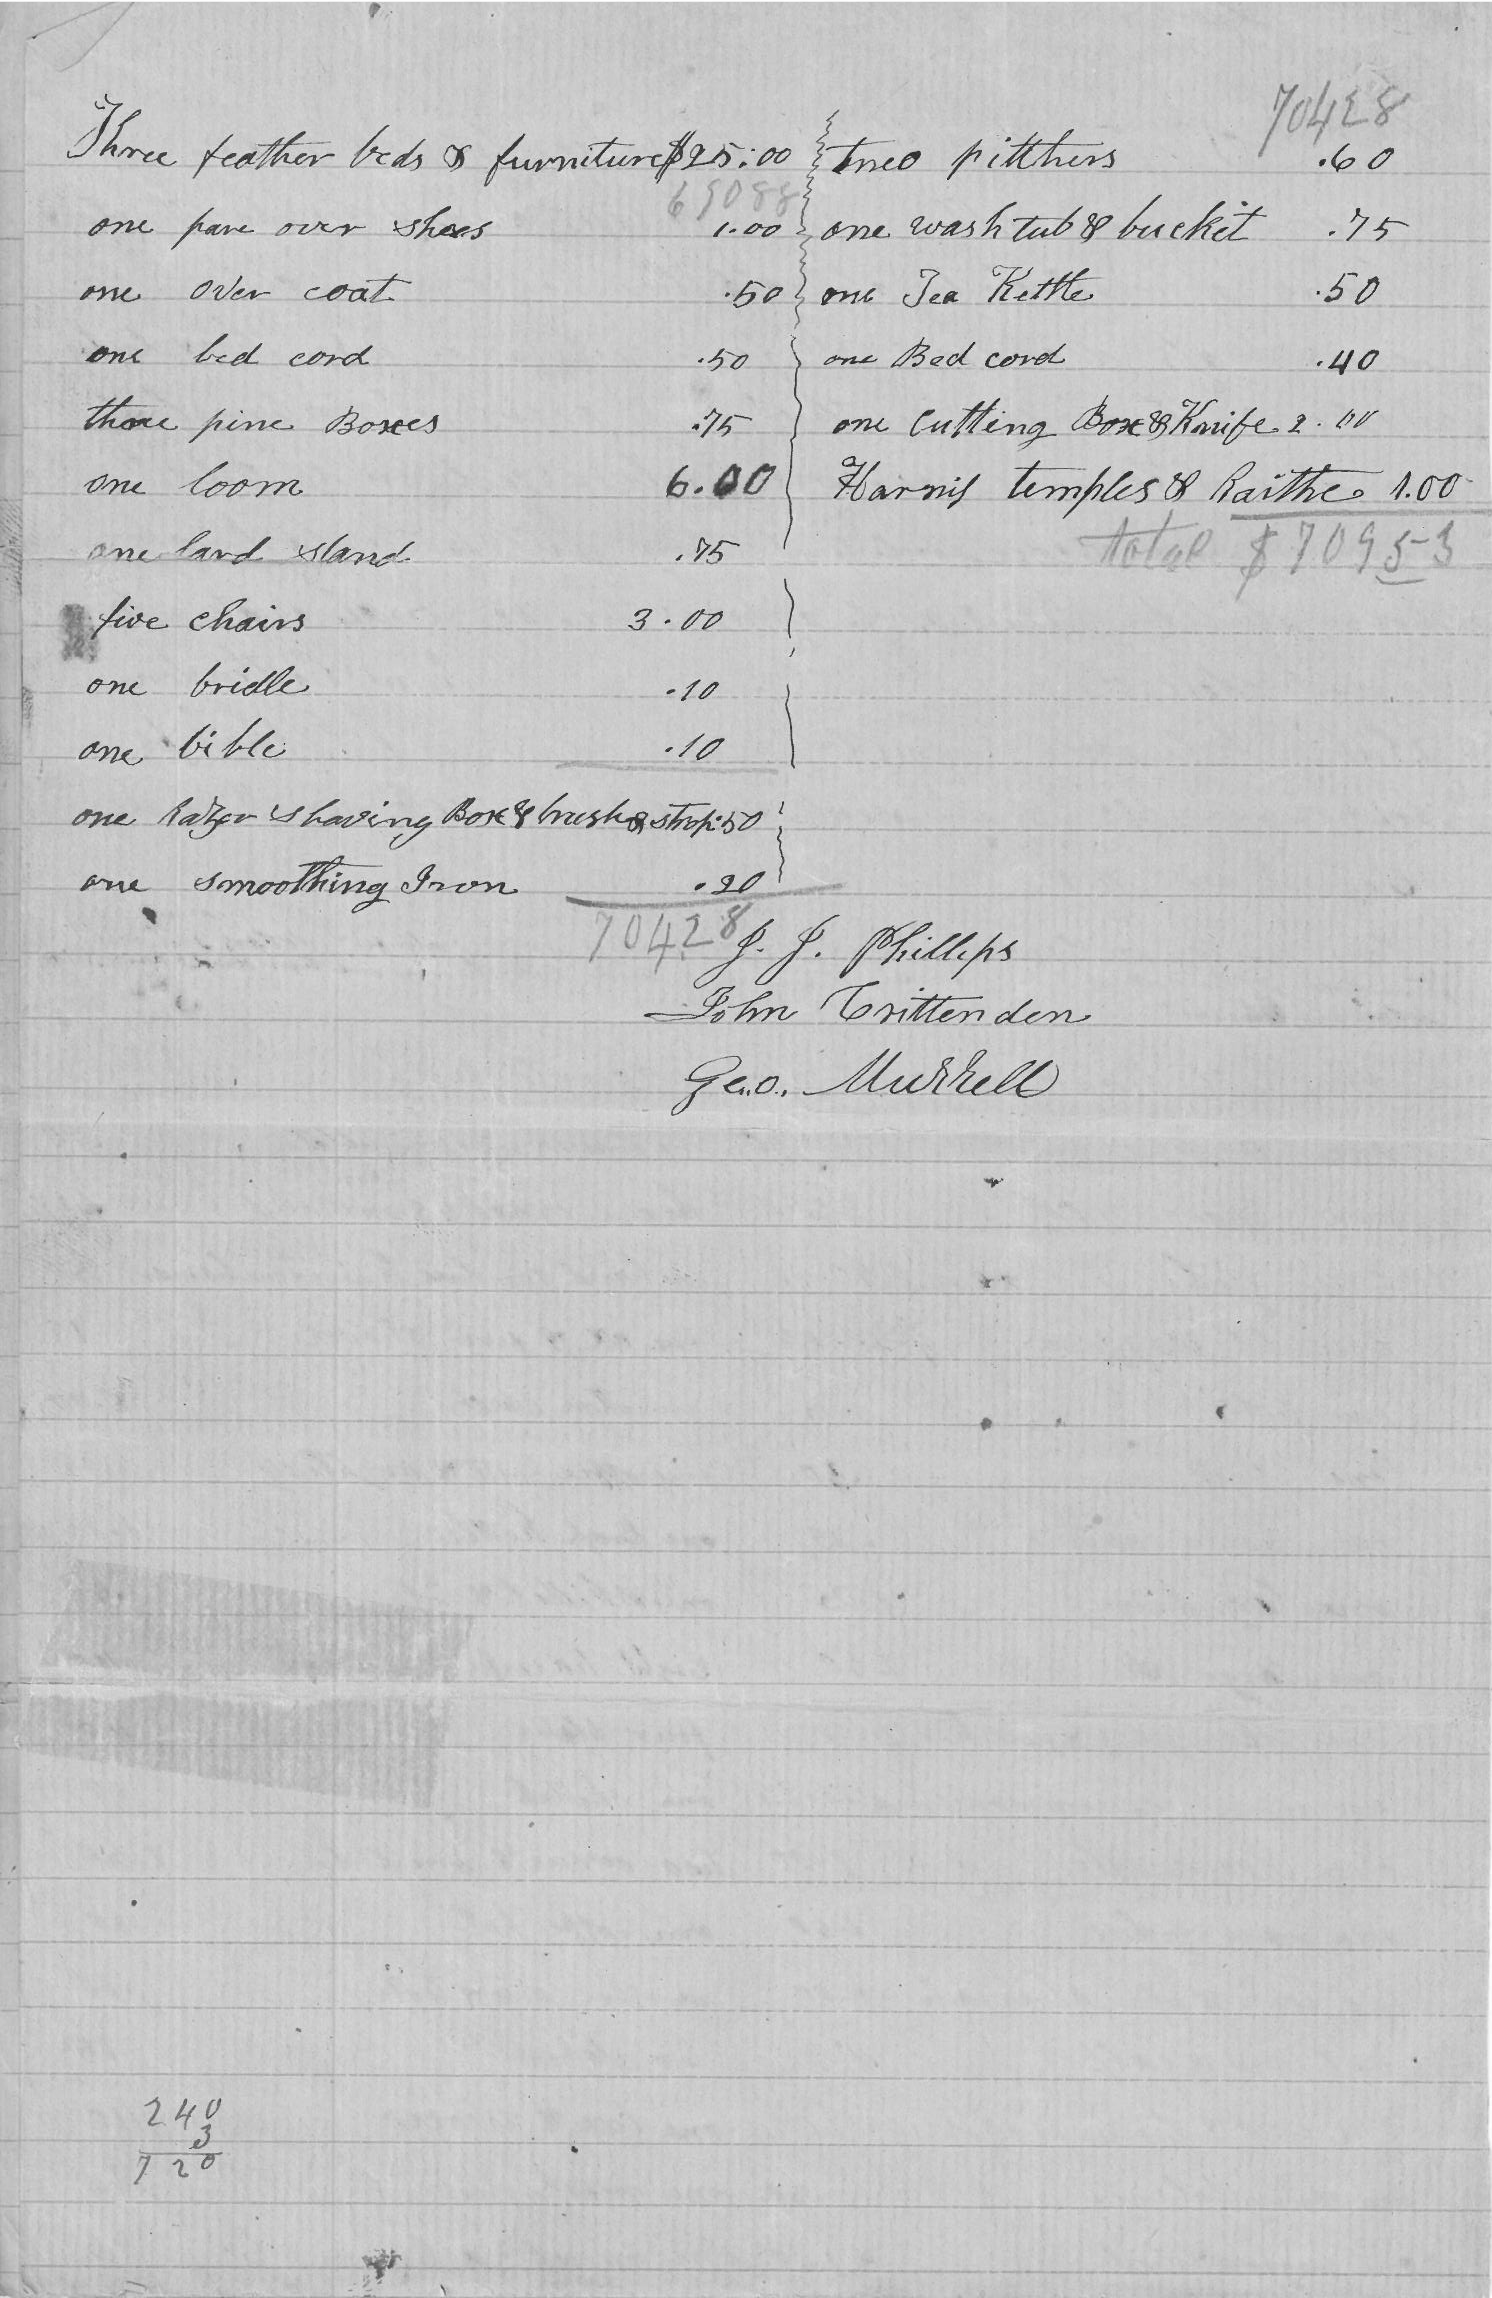 Three feather beds & furniture $25.00
69088
one pare over shoes 1.00
one over coat .50
one bed cord .50
three pine Boxes .75
one loom 6.00
one lard stand .75
five chairs 3.00
one bridle .10
one bible .10
one Razor shaving Box & brush & strop .50
one smoothing Iron .20
70428
70428
two pitthers .60
one wash tub & bucket .75
one Tea Kettle .50
one Bed cord .40
one Cutting Box & Knife 2.00
Harnis temples & Raithe 1.00
total $70953
J. J. Phillips
John Crittenden
Geo. Murrell
240
3
720